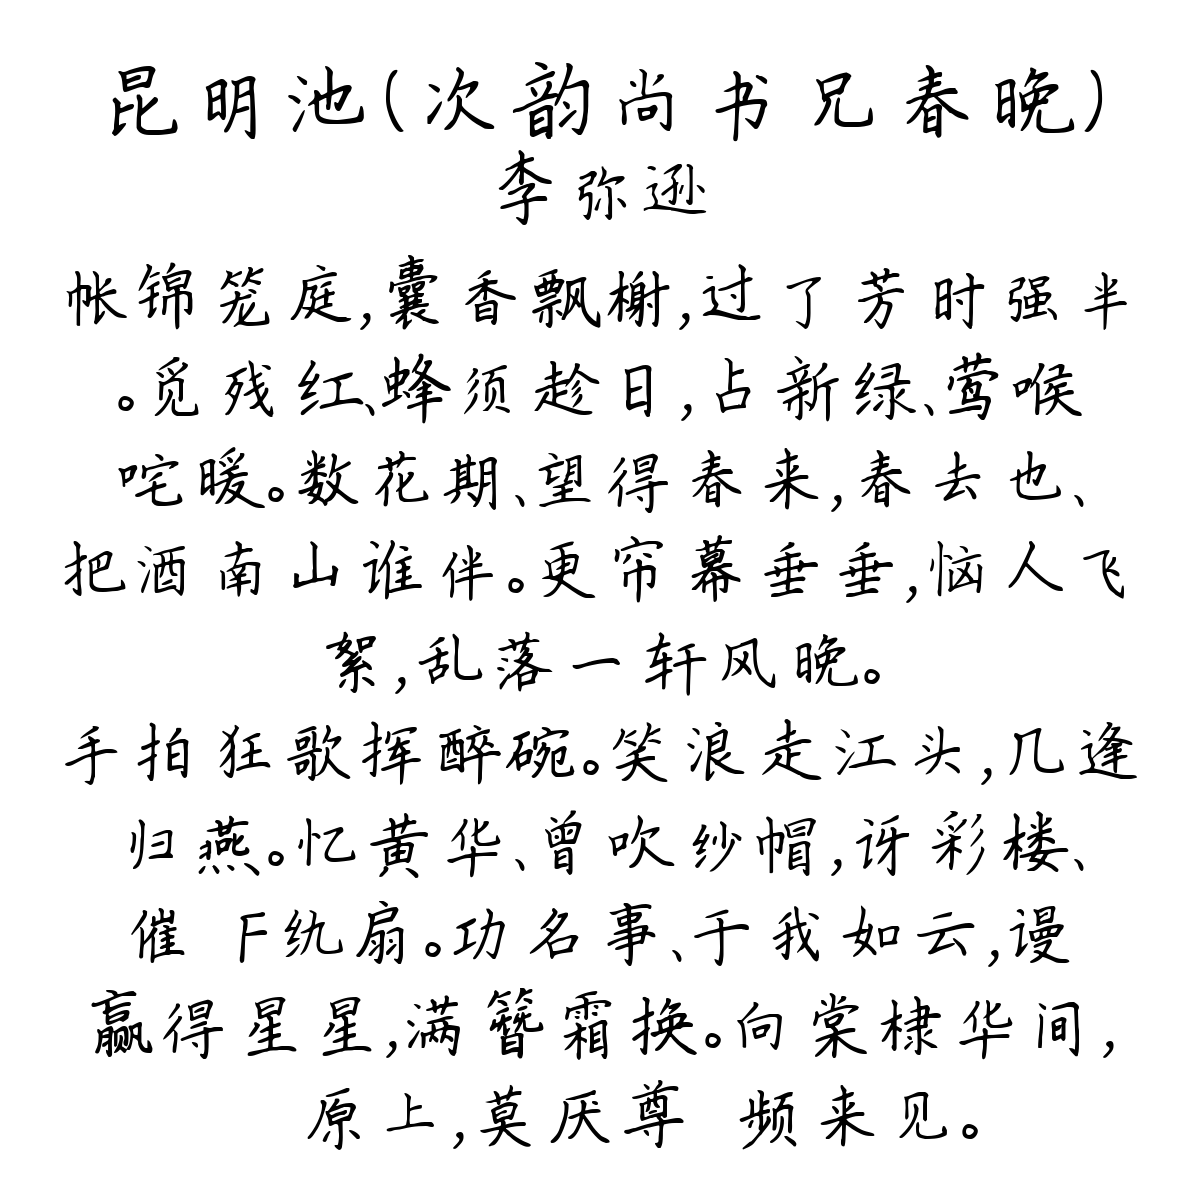 昆明池(次韵尚书兄春晚)
李弥逊
帐锦笼庭,囊香飘榭,过了芳时强半
。觅残红、蜂须趁日,占新绿、莺喉
咤暖。数花期、望得春来,春去也、
把酒南山谁伴。更帘幕垂垂,恼人飞
絮,乱落一轩风晚。
手拍狂歌挥醉碗。笑浪走江头,几逢
归燕。忆黄华、曾吹纱帽,讶彩楼、
催 F纨扇。功名事、于我如云,谩
赢得星星,满簪霜换。向棠棣华间,
原上,莫厌尊 频来见。